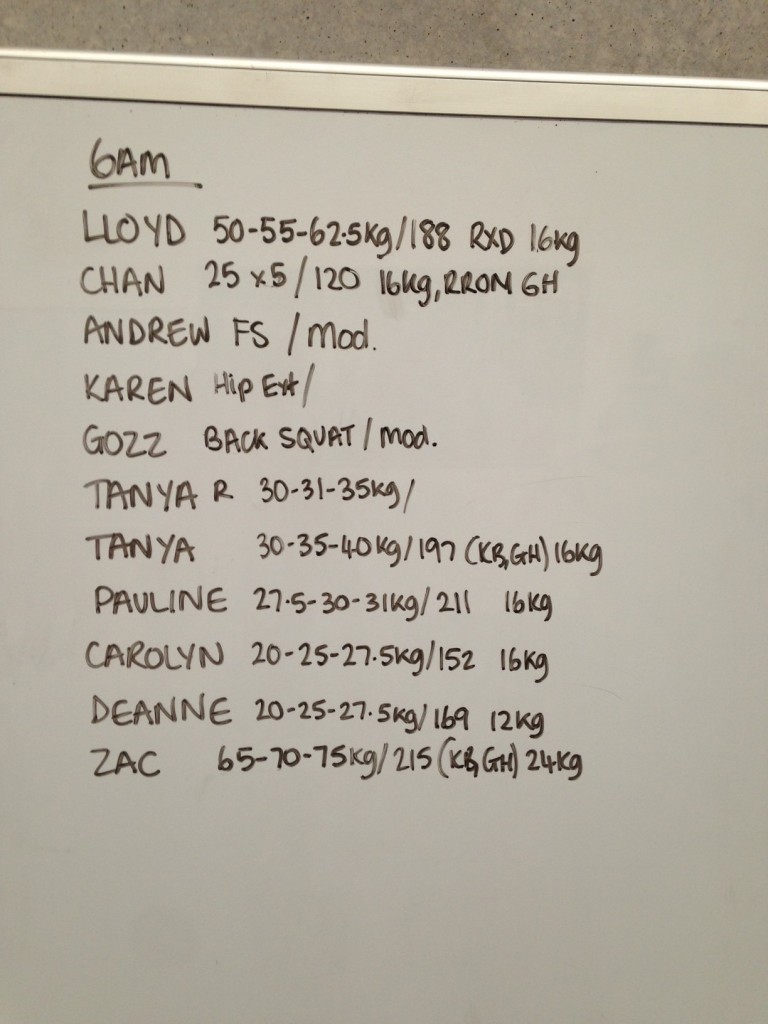 6AM
LLOYD 50-55-62.5kg/188 RXD 16kg
CHAN 25 x5/120 16kg, RROM GH
ANDREW FS / Mod.
KAREN Hip Ext/
GOZZ BACK SQUAT / Mod.
TANYA R 30-31-35kg/
TANYA 30-35-40kg/197 (KB,GH) 16kg
PAULINE 27.5-30-31kg/211 16kg
CAROLYN 20-25-27.5kg/152 16kg
DEANNE 20-25-27.5kg/169 12kg
ZAC 65-70-75kg/215 (KB,GH) 24kg